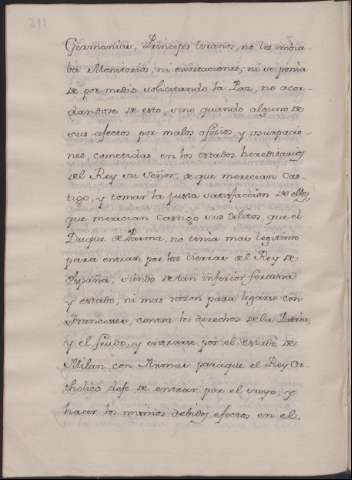 311
Germania, Principes tiranos, no les embia-
ba Monitorias, ni exortaciones, ni se ponia
de por medio solicitando la Paz, no acor-
dandose de esto, sino quando alguno de
sus afectos por malos oficios, y usurpacio-
nes, cometidas en los estados hereditarios
del Rey su Señor, de que merecian cas-
tigo, y tomar la justa satisfaccion de ellos,
que merecian castigo sus delitos que el
Duque de Parma, no tenia mas legitimo
para entrar por las tierras del Rey de
España, siendo de tan inferior fortuna
y estado, ni mas razon para ligarse con
Franceses, contra los derechos de la Patria,
y el feudo, y entrarse por el estado de
Milan con Armas paraque el Rey Ca-
tholico dexe de entrar por el suyo, y
hacer los mismos debidos efectos en el.